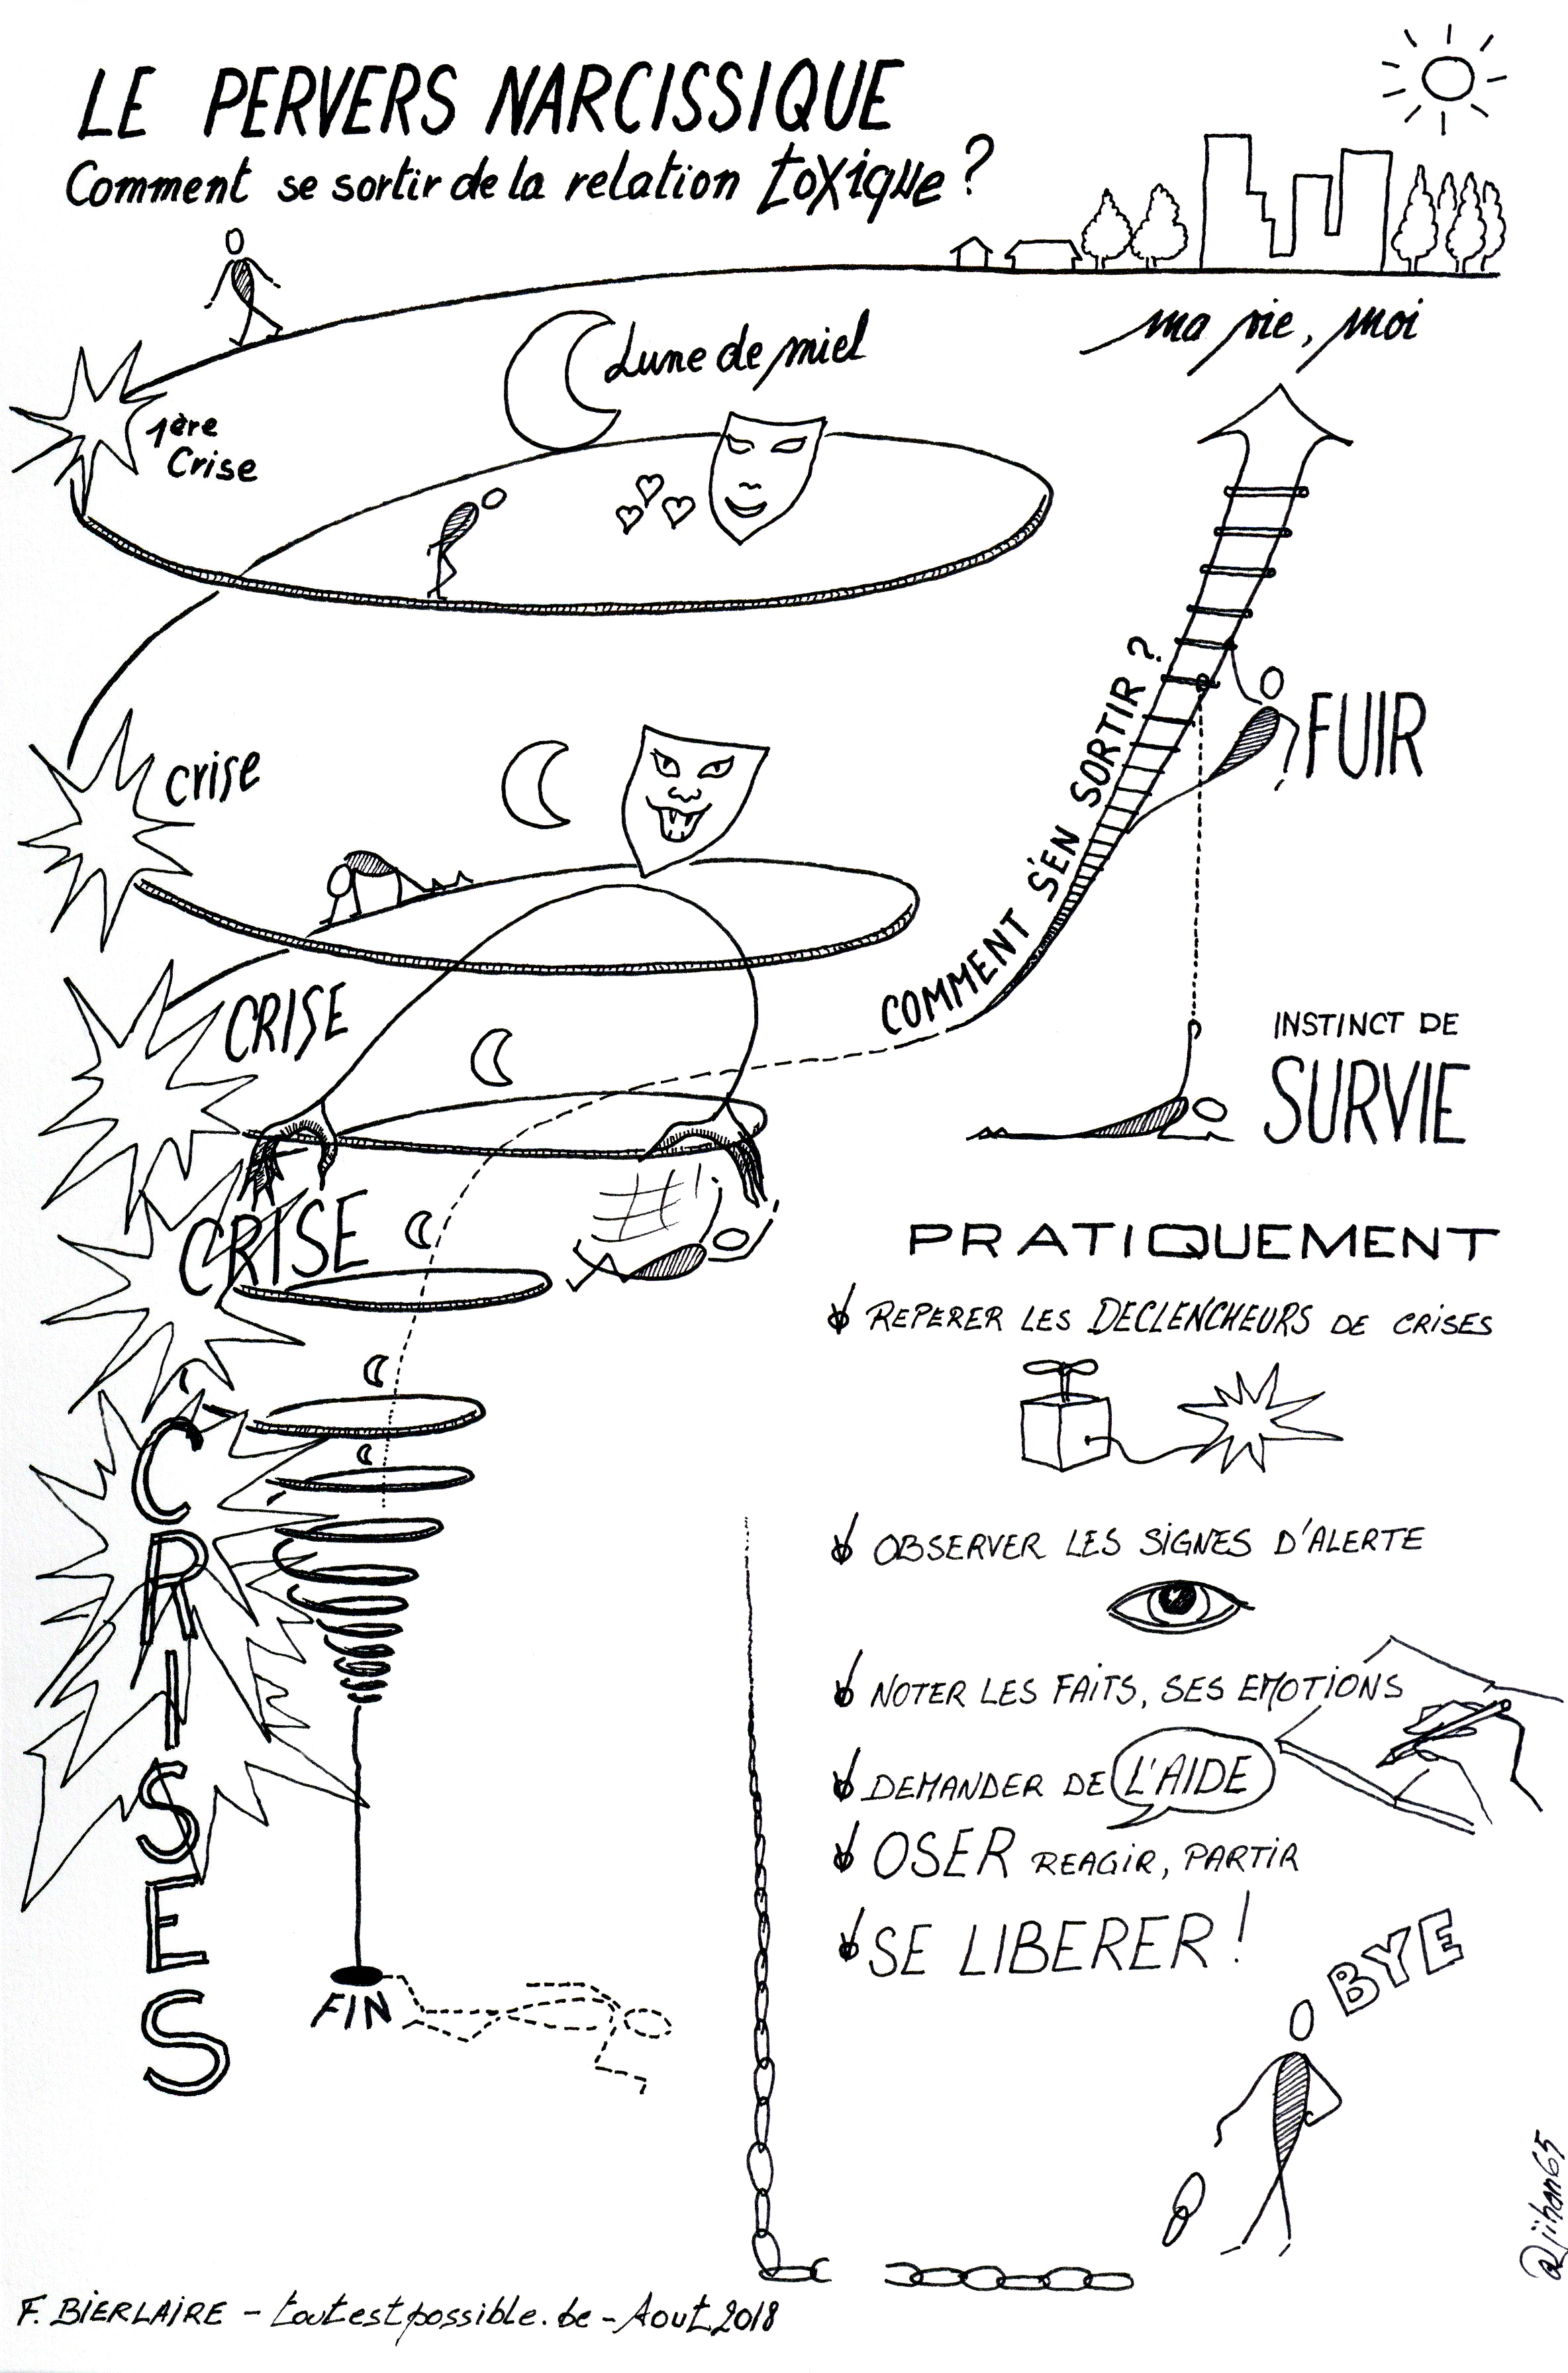 LE PERVERS NARCISSIQUE
Comment se sortir de la relation toxique ?
ma vie, moi
Lune de miel
1ère
Crise
crise
CRISE
CRISE
CRISES
FIN
COMMENT S'EN SORTIR ?
FUIR
INSTINCT DE
SURVIE
PRATIQUEMENT
REPERER LES DECLENCHEURS DE CRISES
OBSERVER LES SIGNES D'ALERTE
NOTER LES FAITS, SES EMOTIONS
DEMANDER DE L'AIDE
OSER REAGIR, PARTIR
SE LIBERER !
BYE
@jihan65
F. BIERLAIRE - toutestpossible.be - Aout 2018